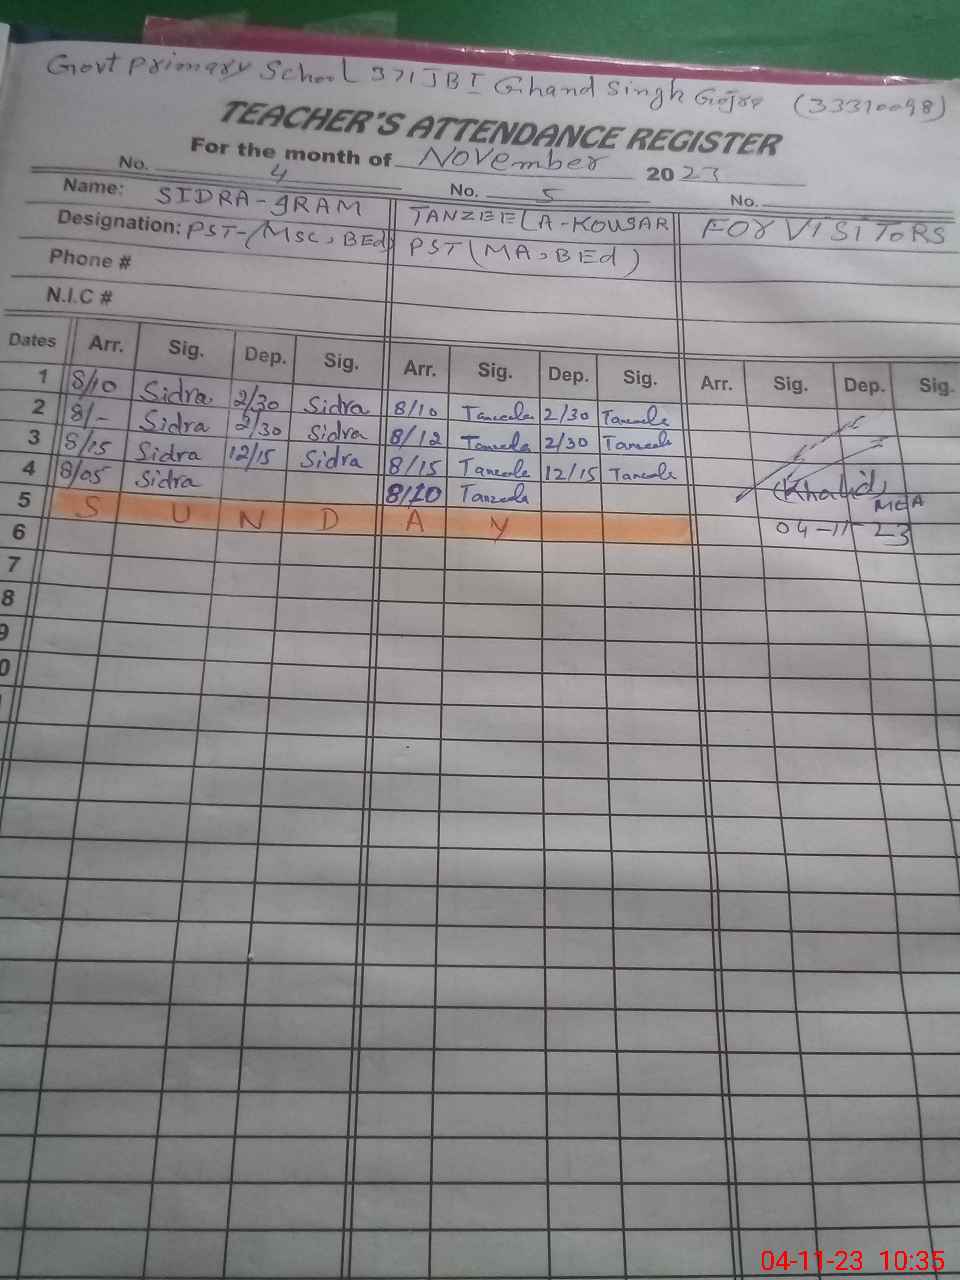 Govt Primary School 371 JB I Gihand Singh Gojra (33310098)
TEACHER'S ATTENDANCE REGISTER
For the month of November 2023
No. 4 No. 5 No.
Name: SIDRA-gRAM TANZEELA-KOUSAR FOR VISITORS
Designation: PST-(MSc, BEd) PST (MA, BEd)
Phone #
N.I.C #
Dates Arr. Sig. Dep. Sig. Arr. Sig. Dep. Sig. Arr. Sig. Dep. Sig.
1 8/10 Sidra 2/30 Sidra 8/10 Tanzeela 2/30 Tanzeela
2 8/- Sidra 2/30 Sidra 8/12 Tanzeela 2/30 Tanzeela
3 8/15 Sidra 12/15 Sidra 8/15 Tanzeela 12/15 Tanzeela
4 8/05 Sidra 8/10 Tanzeela (Khalid)
MEA
5 S U N D A Y 04-11-23
6
7
8
9
0
04-11-23 10:35